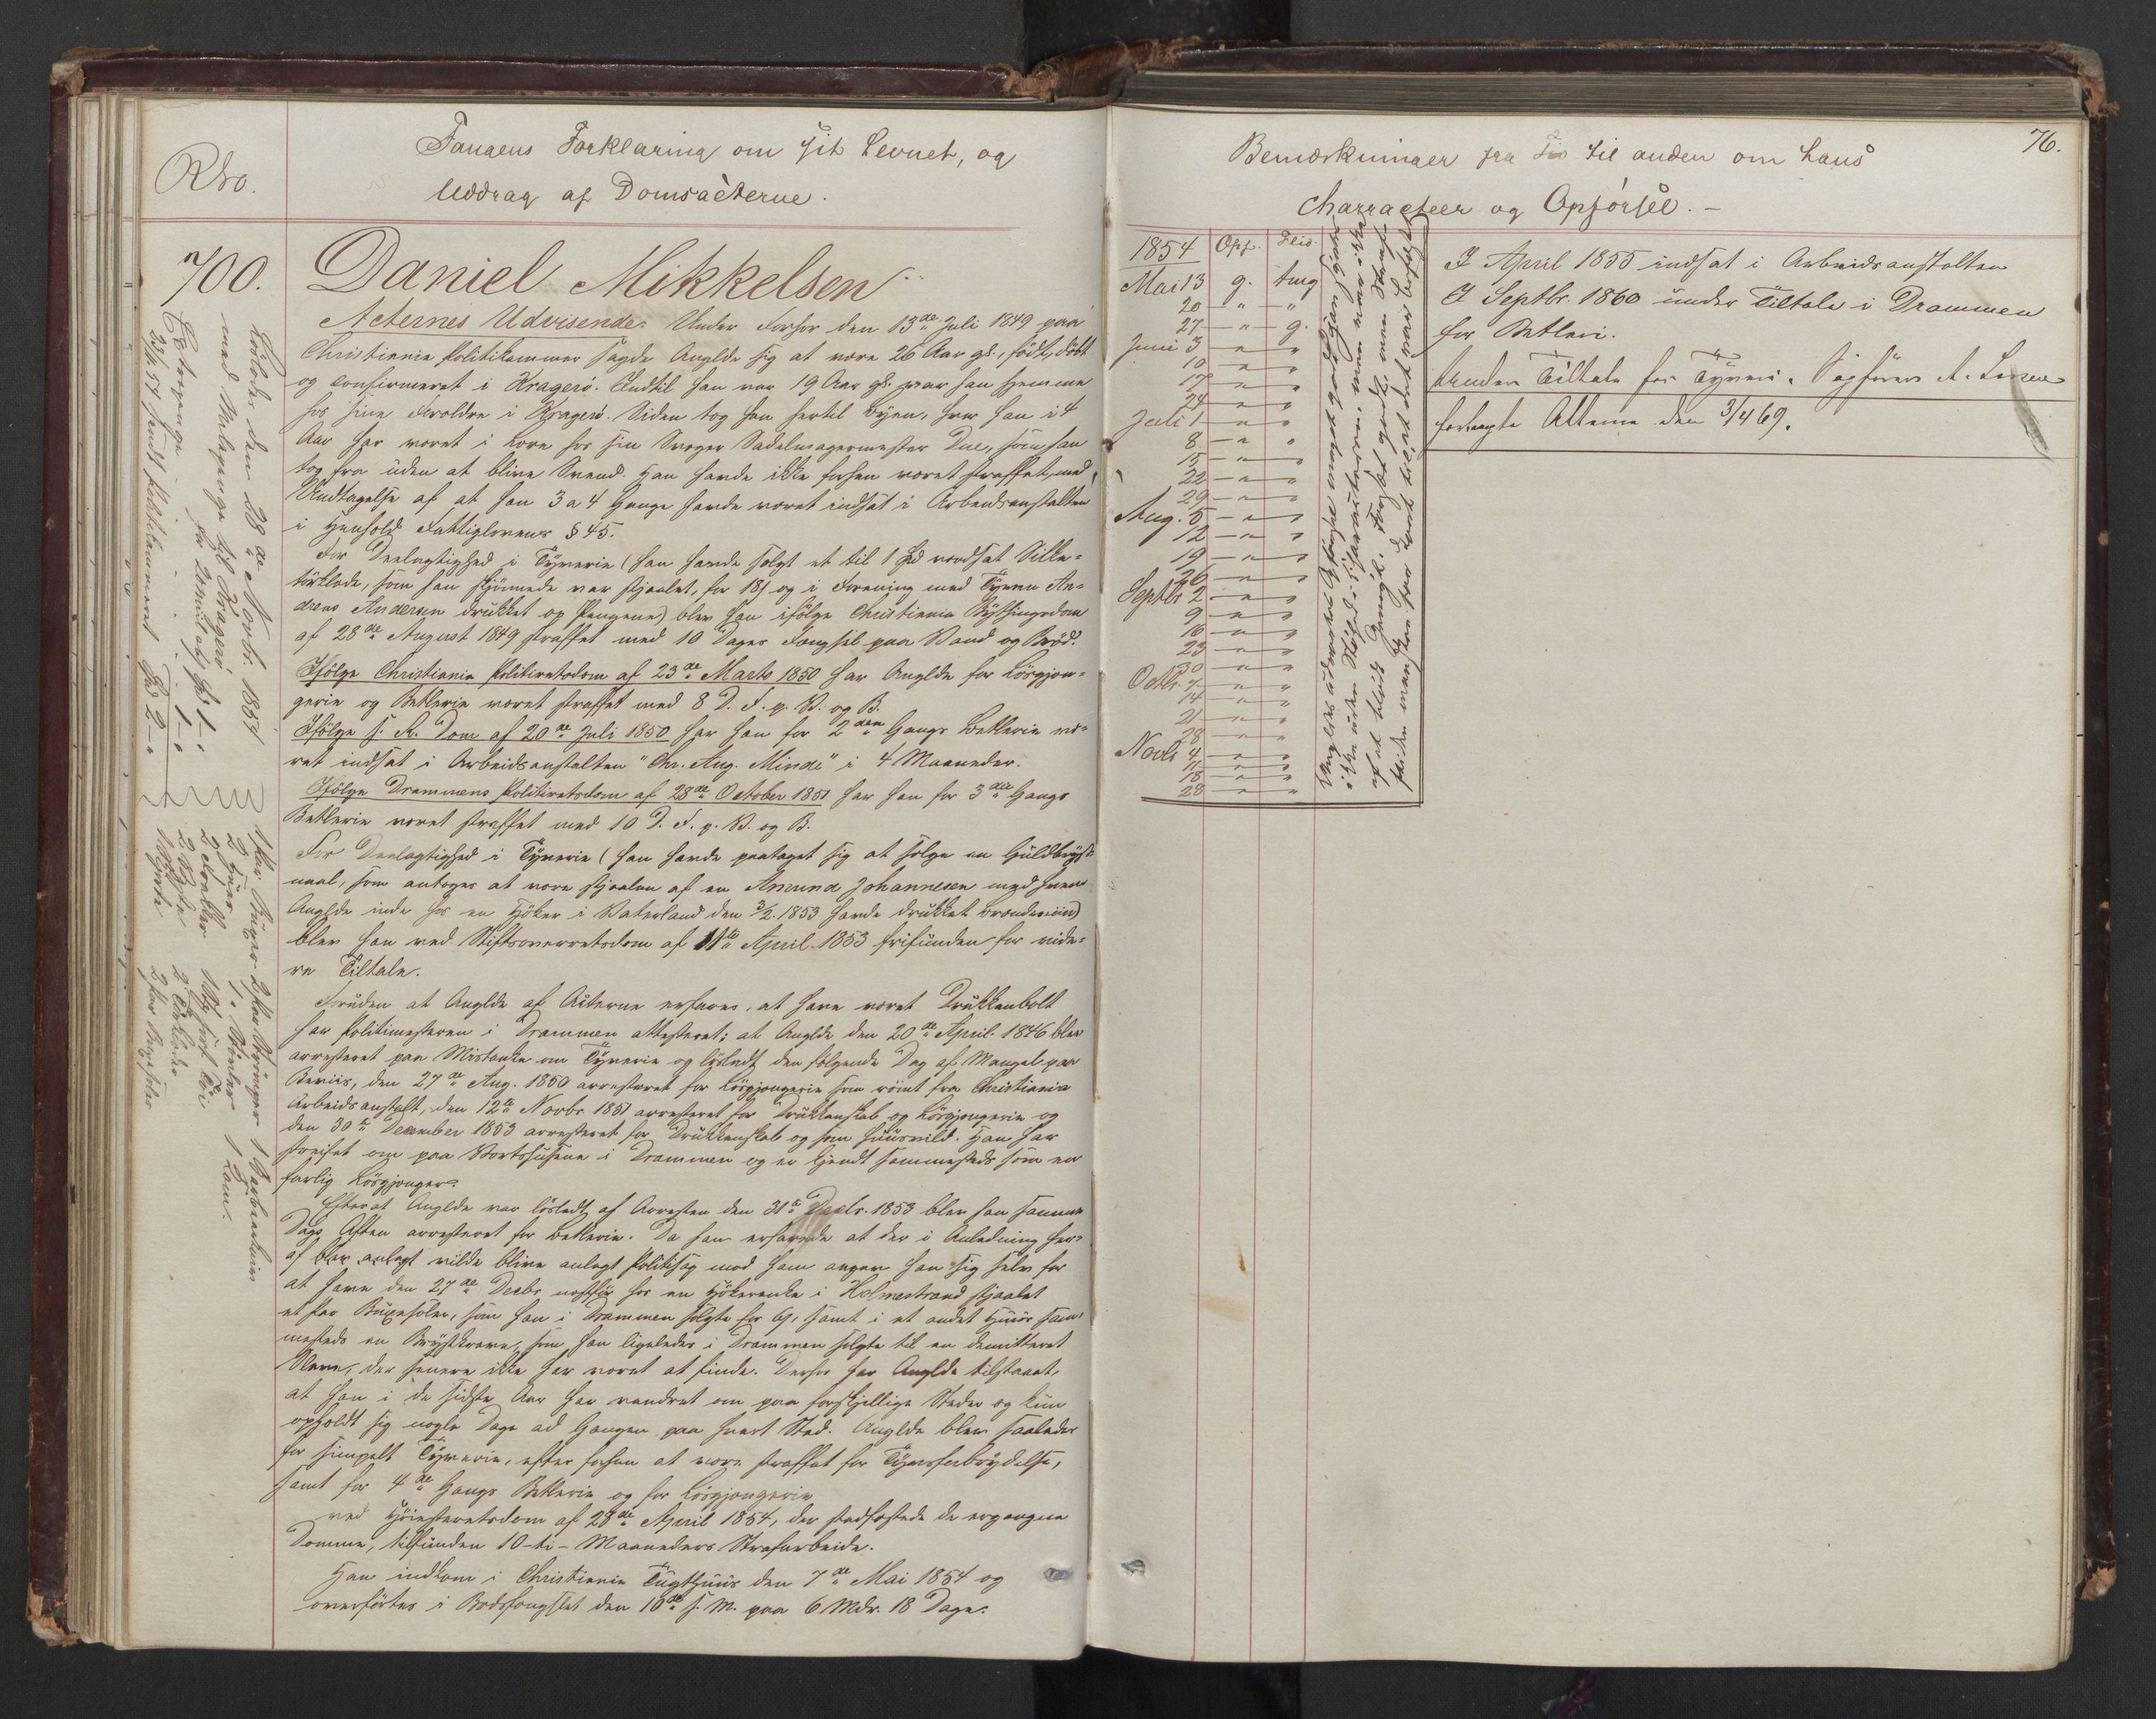 Fangens Forklaring om sit Levnet, og
Uddrag af Domsacterne.
No.
700.
Daniel Mikkelsen
Acternes Udvisende. Under Forhør den 13de Juli 1849 paa
Christiania Politikammer sagde Anglde sig at være 26 Aar gl., født, døbt
og confirmeret i Kragerö. Indtil han var 19 Aar gl. var han hjemme
hos sine Forældre i Kragerö. Siden tog han hertil Byen, hvor han i 4
Aar har været i Lære hos sin Svoger Sadelmagermester Due, som han
tog fra uden at blive Svend. Han havde ikke forhen været straffet, med
Undtagelse af at han 3 a 4 Gange havde været indsat i Arbeidsanstalten
i Henhold Fattiglovens § 45.
For Deelagtighed i Tyverie (han havde solgt et til 1 Spd værdsat Silke-
törklæde, som han skjönnede var stjaalet, for 18 s og i Forening med Tyven An-
dreas Andersen drukket op Pengene) blev han ifölge Christiania Bythingsdom
af 28de August 1849 straffet med 10 Dages Fængsel paa Vand og Bröd.
Ifölge Christiania Politiretsdom af 23de Marts 1850 har Anglde for Lösgjæn-
gerie og Betlerie været straffet med 8 D. F. p. V. og B.
Ifölge s. R. Dom af 20de Juli 1850 har han for 2den Gangs Betlerie væ-
ret indsat i Arbeidsanstalten "Chr. Aug. Minde" i 4 Maaneder.
Ifölge Drammens Politiretsdom af 28de October 1851 har han for 3die Gangs
Betlerie været straffet med 10 D. F. p. V. og B.
For Deelagtighed i Tyverie (han havde paataget sig at sælge en Guldbryst-
naal, som antoges at være stjaalen af en Amund Johannesen med hvem
Anglde inde hos en Höker i Vaterland den 3/2 1853 havde drukket Brændeviin)
blev han ved Stiftsoverretsdom af 11te April 1853 frifunden for vide-
re Tiltale.
Foruden at Anglde af Acterne erfares, at have været Drukkenbolt
har Politimesteren i Drammen attesteret: at Anglde den 20de April 1846 blev
arresteret paa Mistanke om Tyverie og lösladt den fölgende Dag af Mangel paa
Beviis, den 27de Aug. 1850 arresteret for Lösgjængerie som römt fra Christiania
Arbeidsanstalt, den 12te Novbr 1851 arresteret for Drukkenskab og Lösgjængerie og
den 30te December 1853 arresteret for Drukkenskab og som huusvild. Han har
streifet om paa Værtshusene i Drammen og er kjendt sammesteds som en
farlig Lösgjænger.
Efterat Anglde var lösladt af Arresten den 31te Decbr. 1853 blev han samme
Dags Aften arresteret for Betlerie. Da han erfarede at der i Anledning her-
af blev anlagt vilde blive anlagt Politisag mod ham angav han sig selv for
at have den 27de Decbr næstför hos en Hökerenke i Holmestrand stjaalet
et Par Buxeseler, som han i Drammen solgte for 6 s, samt i et andet Huus sam-
mesteds en Brystkrave, som han ligeledes i Drammen solgte til en demitteret
Slave, der senere ikke har været at finde. Derhos har Anglde tilstaaet,
at han i de sidste Aar har vandret om paa forskjellige Steder og kun
opholdt sig nogle Dage ad Gangen paa hvert Sted. Anglde blev saaledes
for simpelt Tyverie, efter forhen at være straffet for Tyvsforbrydelse,
samt for 4de Gangs Betlerie og for Lösgjængerie
ved Höiesteretsdom af 28de April 1854, der stadfæstede de ergangne
Domme, tilfunden 10-ti-Maaneders Strafarbeide.
Han indkom i Christiania Tugthuus den 7de Mai 1854 og
overförtes i Bodsfængslet den 10de s. M. paa 6 Mdr. 18 Dage.
Lösladt den 28de Novbr. 1854
med Reisepenge til Kragerö
Tærepenge
1 Par Buxer 2 Par Strömper
2 Tröier
2 Skjorter
2 Par Buxeseler
76.
Bemærkninger fra Tid til anden om hans
Characteer og Opförsel.
1854 Opf. Flid
Mai 13 g. tmg
20 " "
27 " g.
Juni 3 " "
10 " "
17 " "
24 " "
Juli 1 " "
8 " "
15 " "
22 " "
29 " "
Aug. 5 " "
12 " "
19 " "
26 " "
Septbr 2 " "
9 " "
16 " "
23 " "
30 " "
Octbr. 7 " "
14 " "
21 " "
28 " "
Novbr 4 " "
11 " "
18 " "
28 " "
I April 1855 indsat i Arbeidsanstalten
I Septbr. 1860 under Tiltale i Drammen
for Betleri.
Under Tiltale for Tyveri. Sagförer A.
forlangte Attema den 3/4 69.